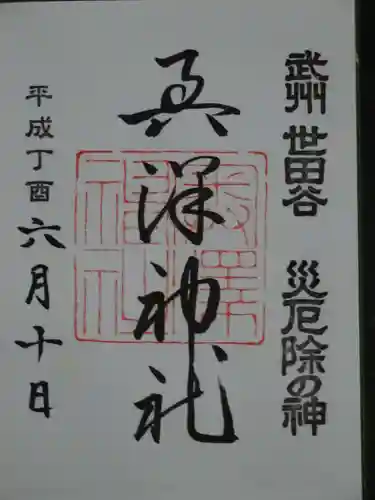 武州 世田谷 災厄除の神
奥澤神社
平成丁酉六月十日
奥澤神社